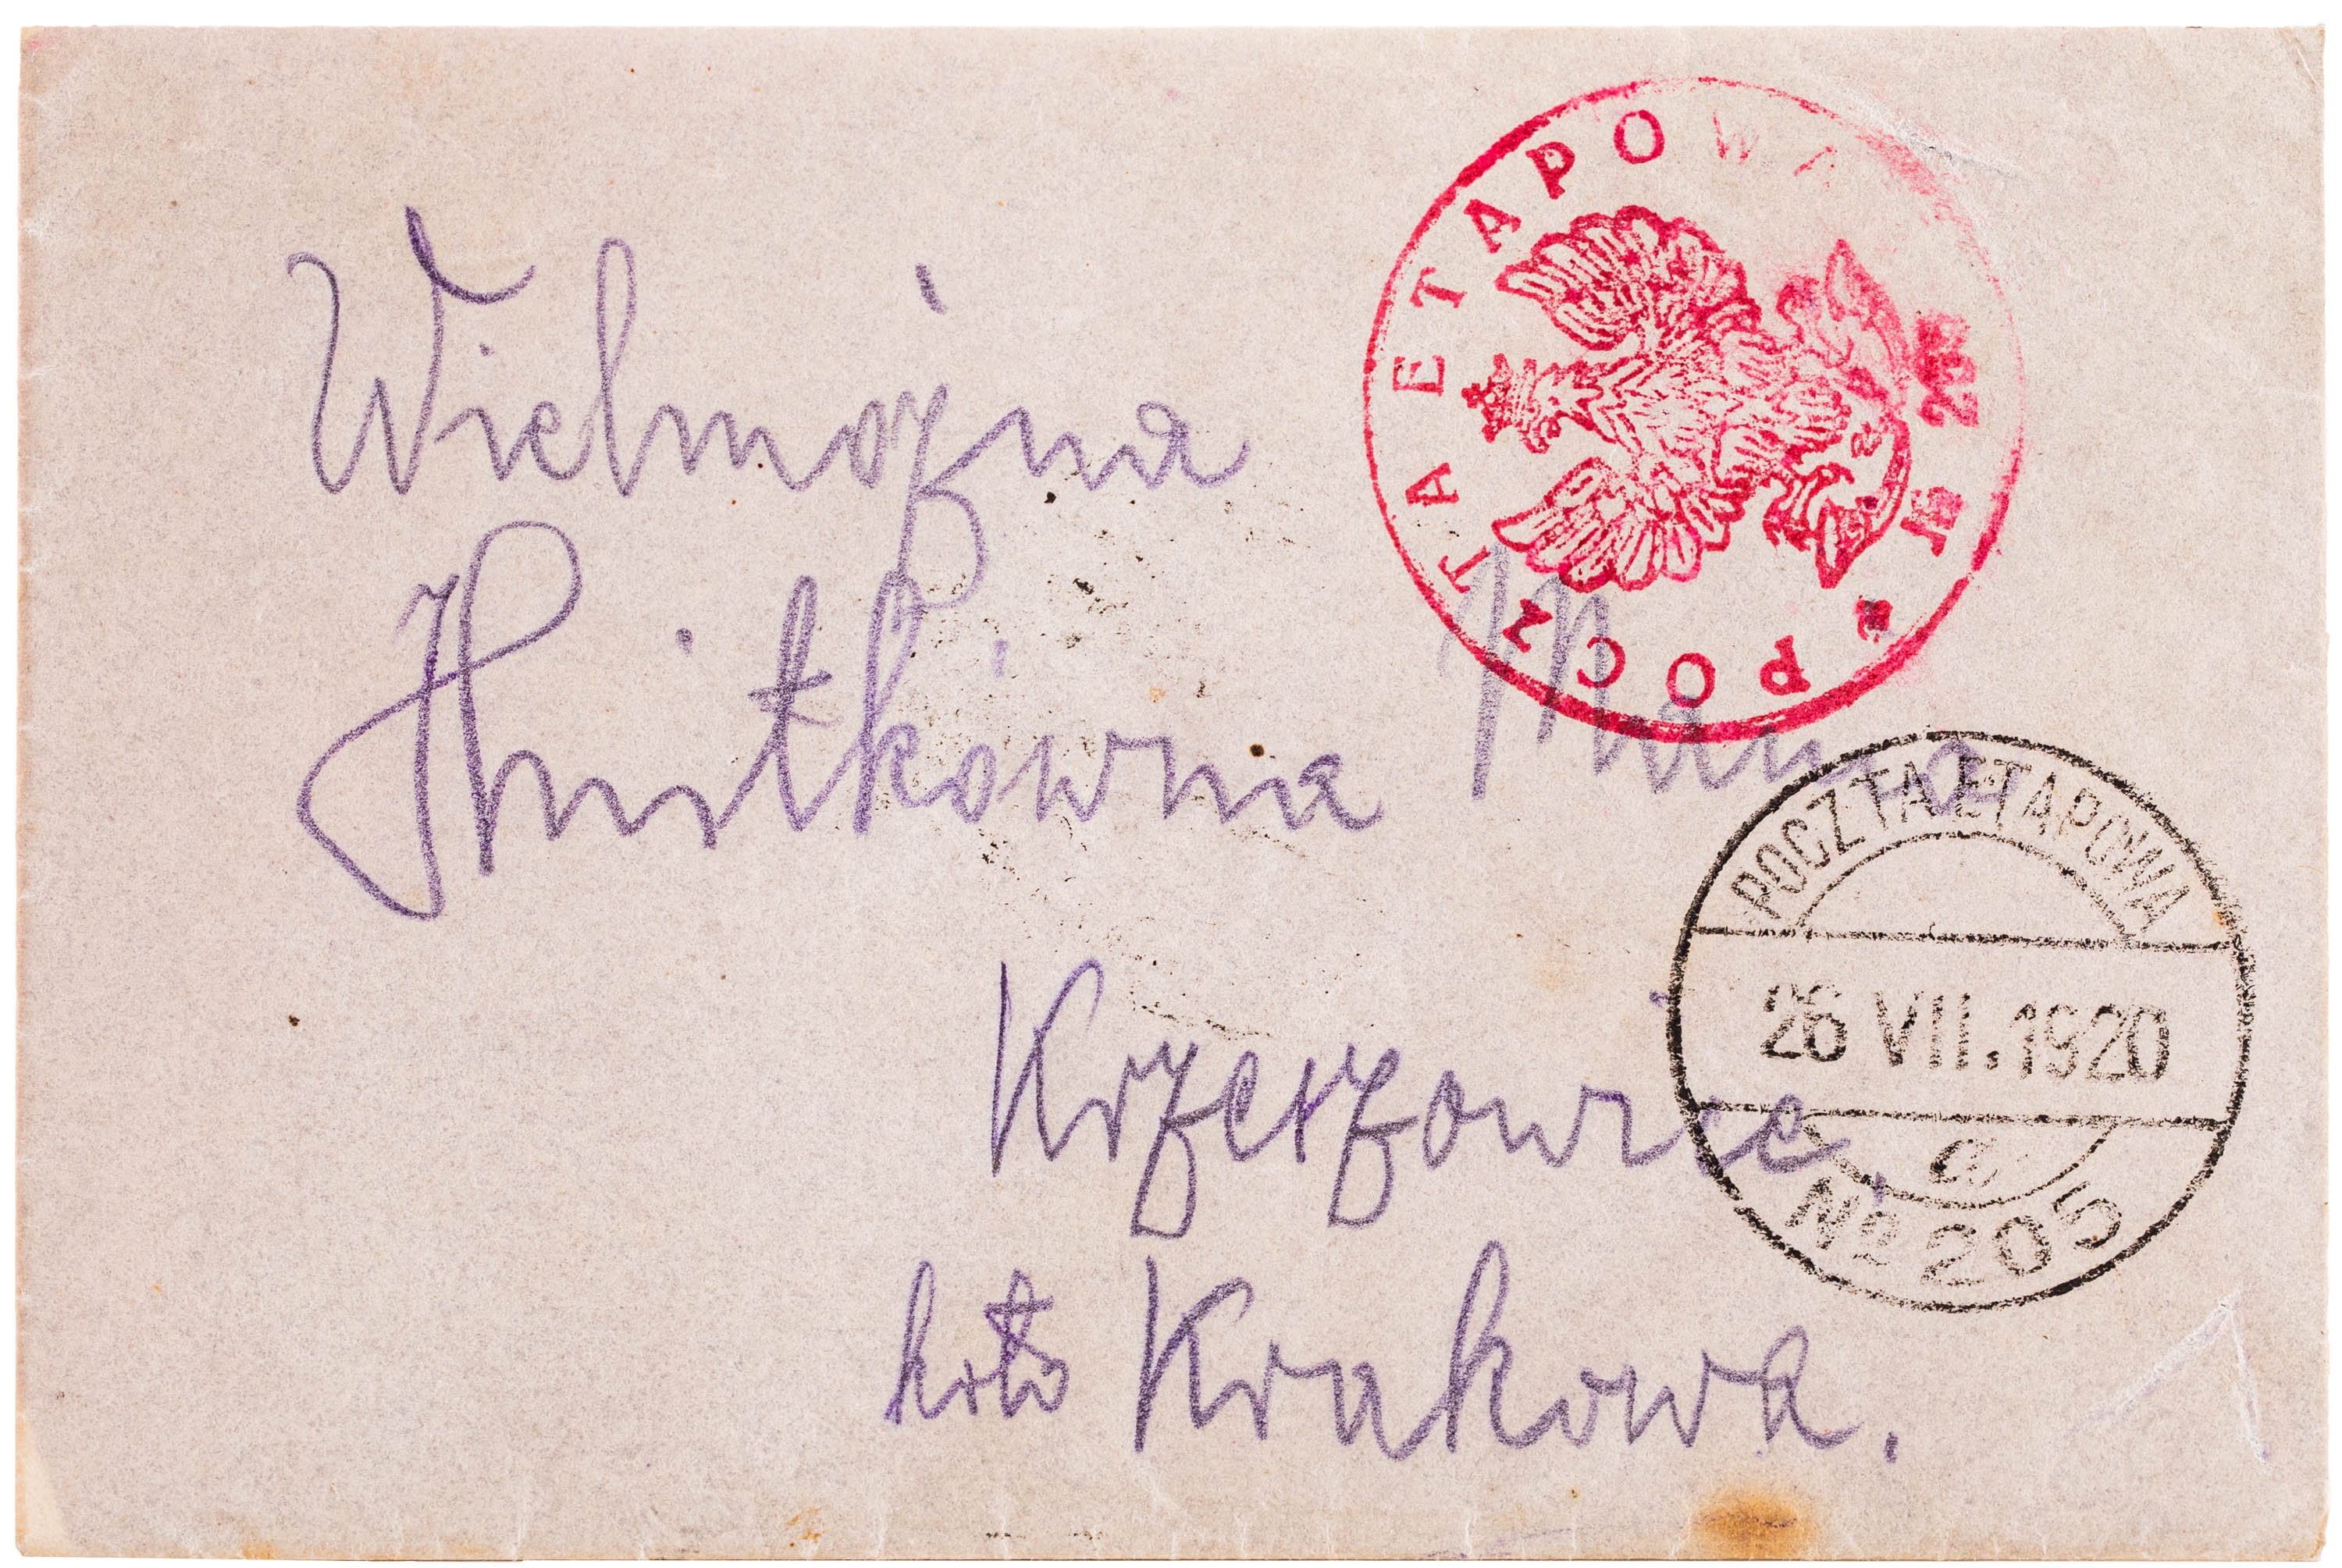 POCZTA ETAPOWA № 205
Wielmożna
Hnitkówna Mina
POCZTA ETAPOWA
26 VII. 1920
a
№ 205
Krzerzowice.
koło Krakowa.